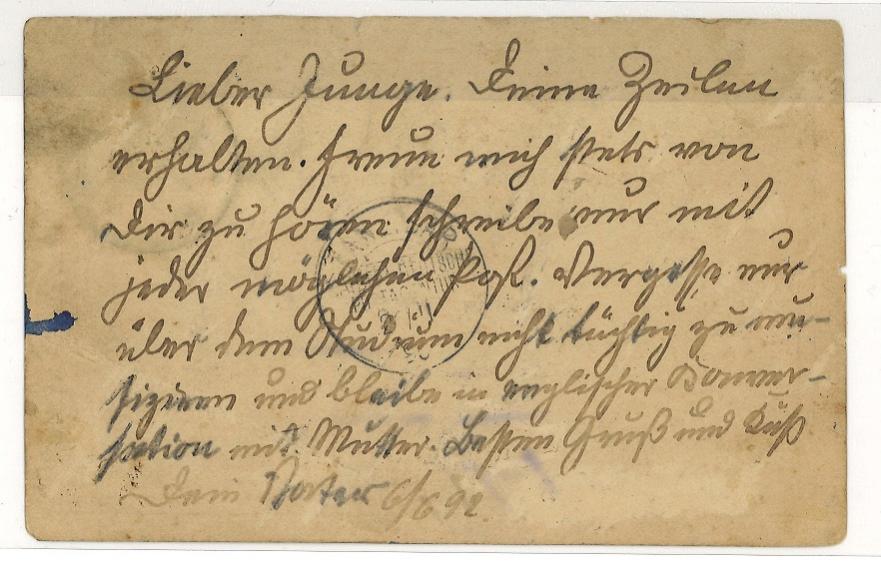 Lieber Junge. Deine Zeilen
erhalten. Freue mich stets von
Dir zu hören schreibe nur mit
jeder möglichen Post. Vergesse nur
über dem Studium nicht tüchtig zu mu-
siziren und bleibe in englischer Konver-
sation mit Mutter. Besten Gruß und Kuß
Dein Vater 6/6 92